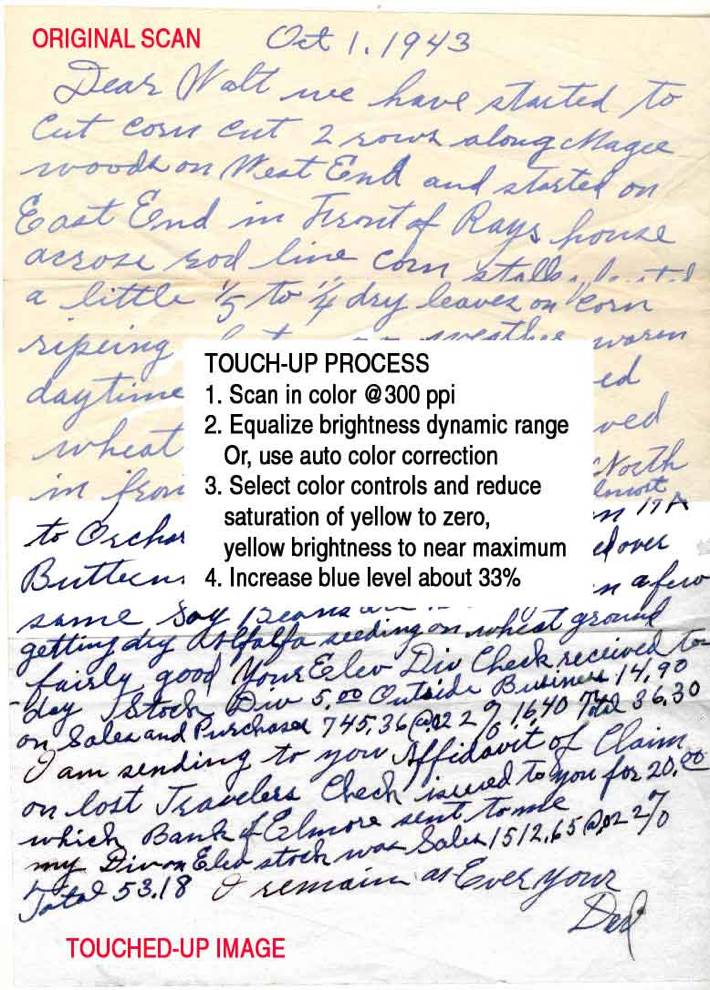 ORIGINAL SCAN
Oct 1, 1943
Dear Walt we have started to
cut corn cut 2 rows along Magee
woods on West End and started on
East End in Front of Rays house
across sod line corn stalks
a little 1/5 to 1/4 dry leaves on corn
ripeing weather warm
daytime ed
wheat ved
in fron North
to Orchar 17 A
Buttern clover
same Soy Beans a few
getting dry Alfalfa seeding on wheat ground
fairly good Your Elev Div Check received to
day Stock Div 5.00 Outside Business 14.90
on Sales and Purchased 745.36 @ .02 2 % 16.40 Total 36.30
I am sending to you Affidavit of Claim
on lost Travelers Check issued to you for 20.00
which Bank of Elmore sent to me
my Div on Elev stock was Sales 1512.65 @ .02 2 %
Total 53.18 I remain as Ever your
Dad
TOUCH-UP PROCESS
1. Scan in color @300 ppi
2. Equalize brightness dynamic range
Or, use auto color correction
3. Select color controls and reduce
saturation of yellow to zero,
yellow brightness to near maximum
4. Increase blue level about 33%
TOUCHED-UP IMAGE